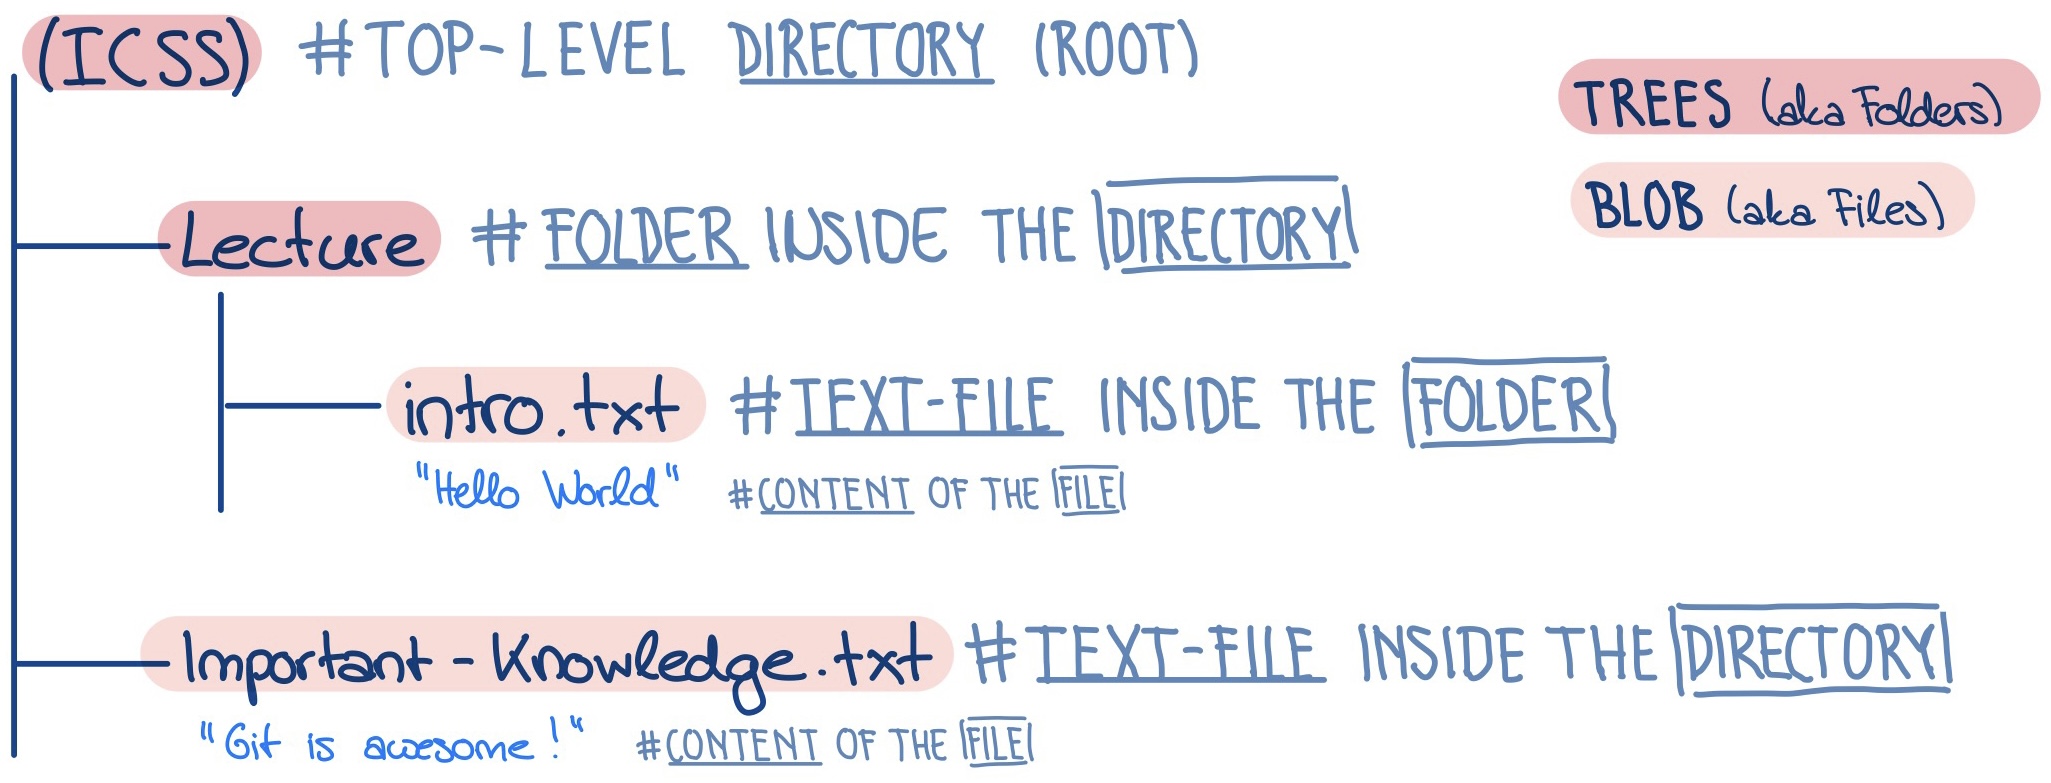 (ICSS) #TOP-LEVEL DIRECTORY (ROOT)
TREES (aka Folders)
BLOB (aka Files)
Lecture # FOLDER INSIDE THE DIRECTORY
intro.txt # TEXT-FILE INSIDE THE FOLDER
"Hello World" #CONTENT OF THE FILE
Important-Knowledge.txt # TEXT-FILE INSIDE THE DIRECTORY
"Git is awesome!" #CONTENT OF THE FILE